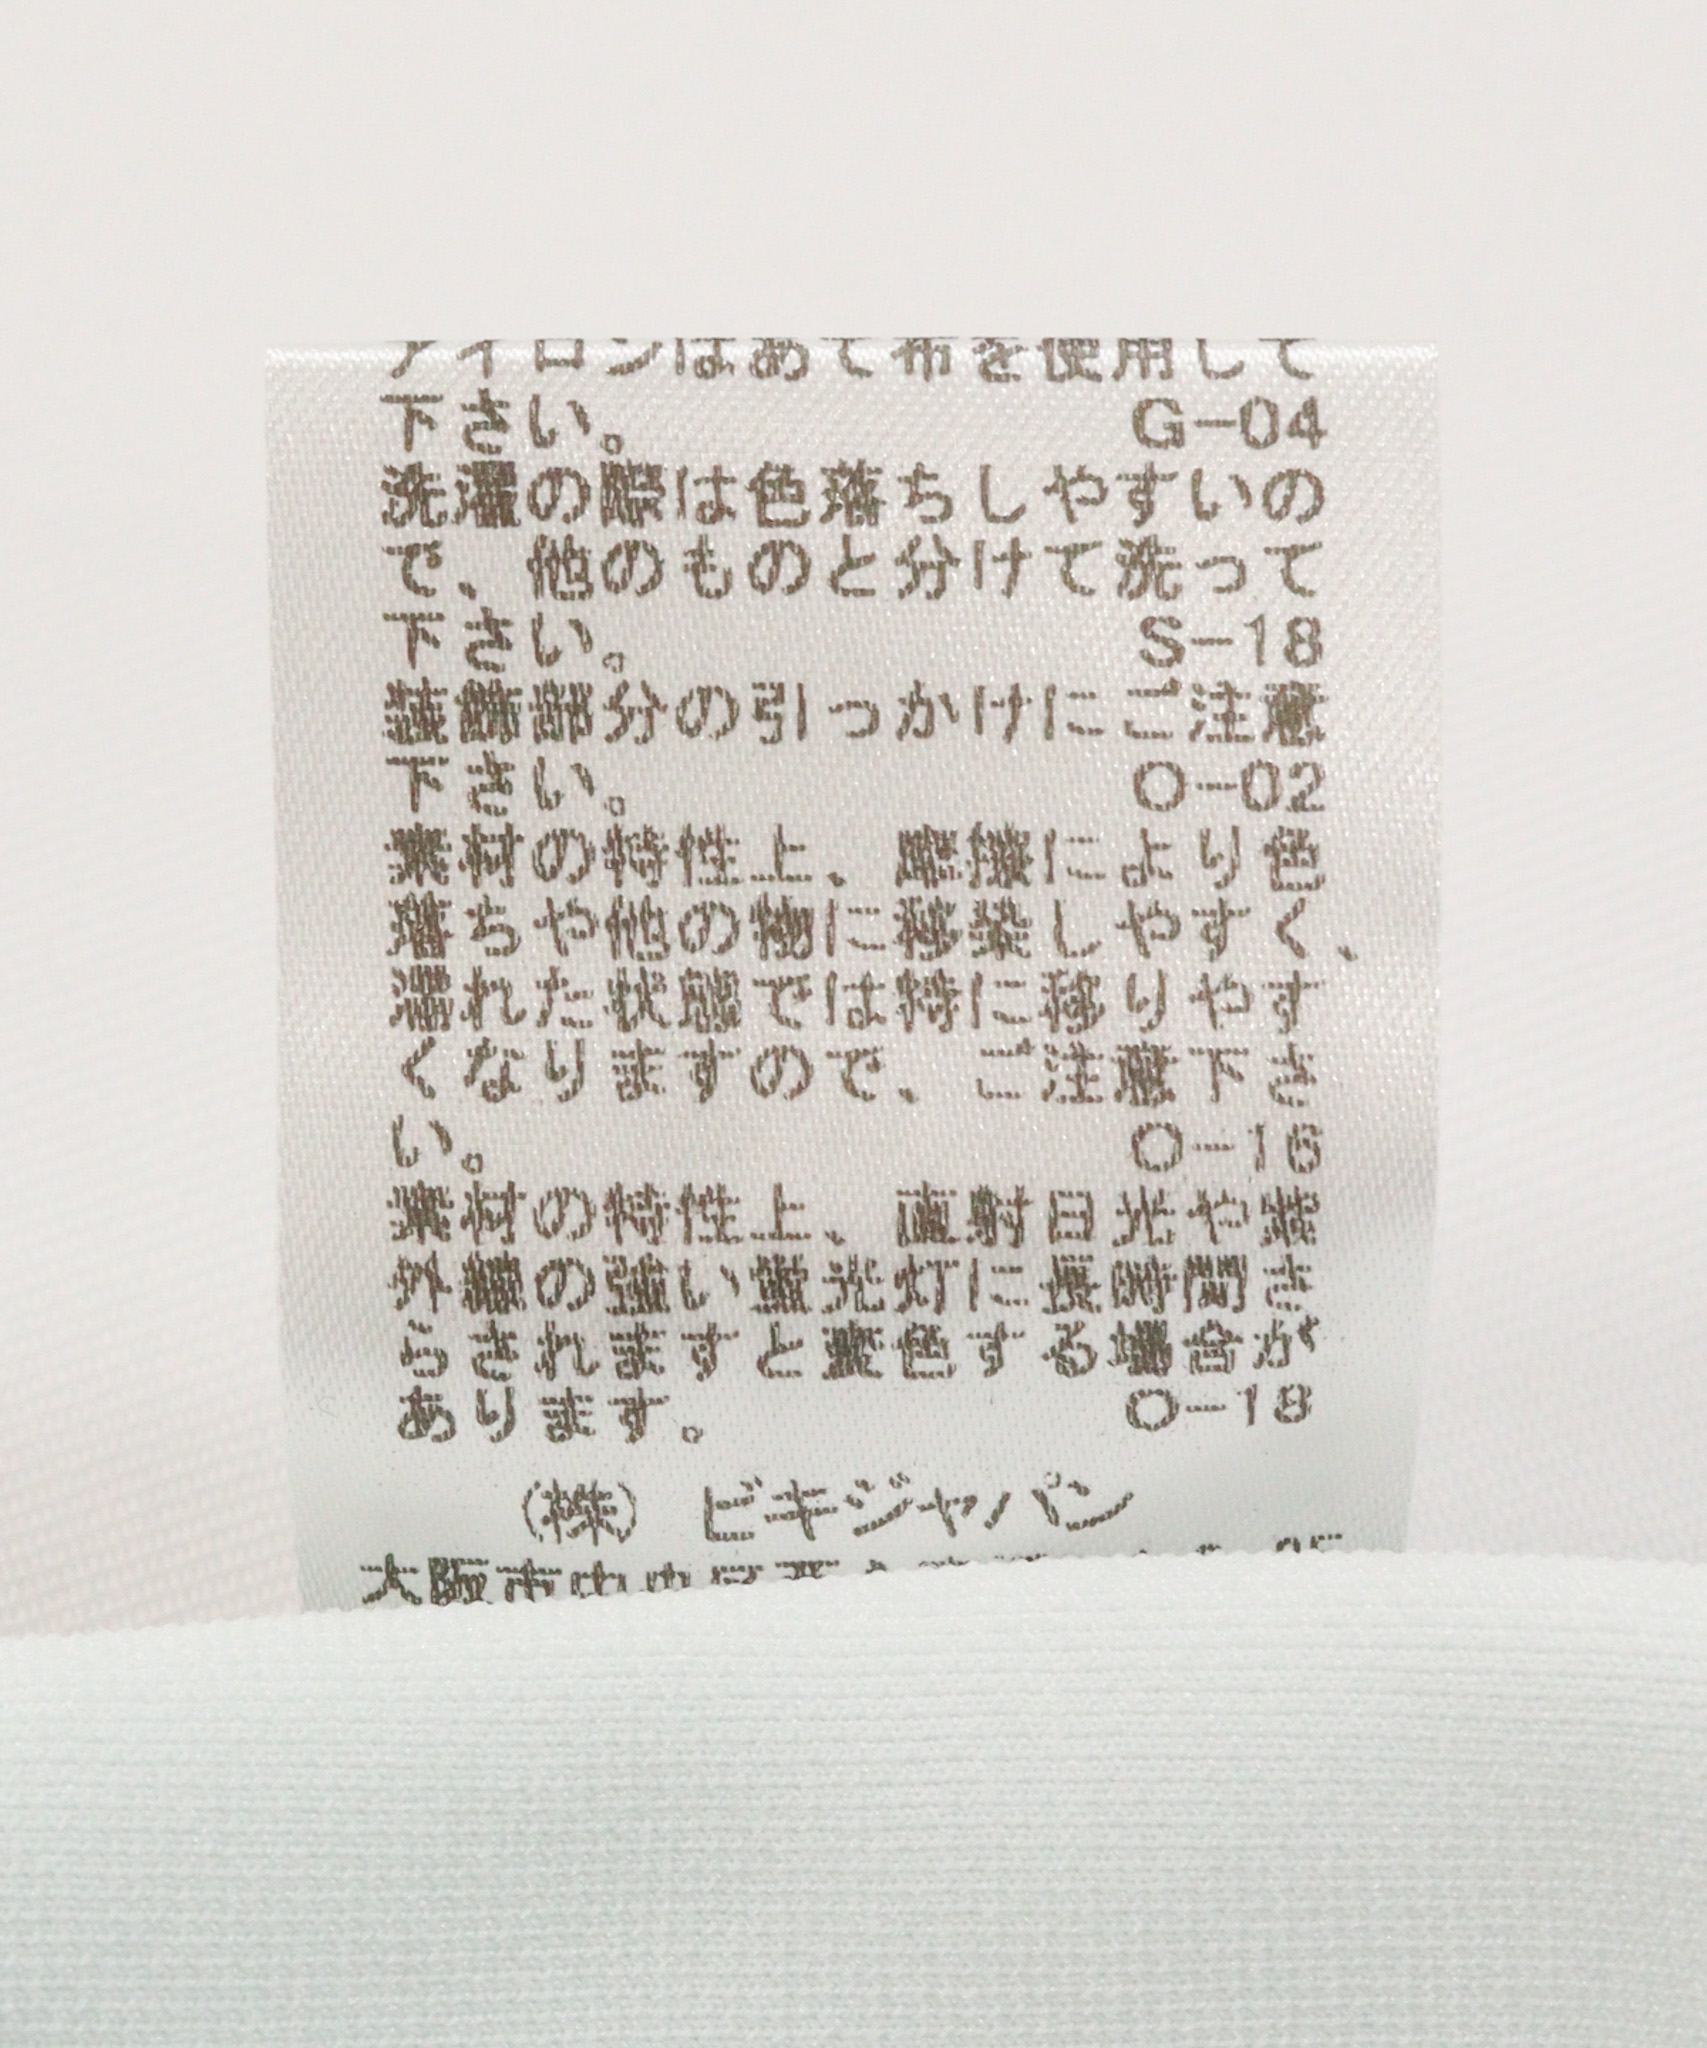 アイロンはあて布を使用して
下さい。 G-04
洗濯の際は色落ちしやすいの
で、他のものと分けて洗って
下さい。 S-18
装飾部分の引っかけにご注意
下さい。 O-02
素材の特性上、摩擦により色
落ちや他の物に移染しやすく、
濡れた状態では特に移りやす
くなりますので、ご注意下さ
い。 O-16
素材の特性上、直射日光や紫
外線の強い蛍光灯に長時間さ
らされますと変色する場合が
あります。 O-18
(株) ビキジャパン
大阪市中央区